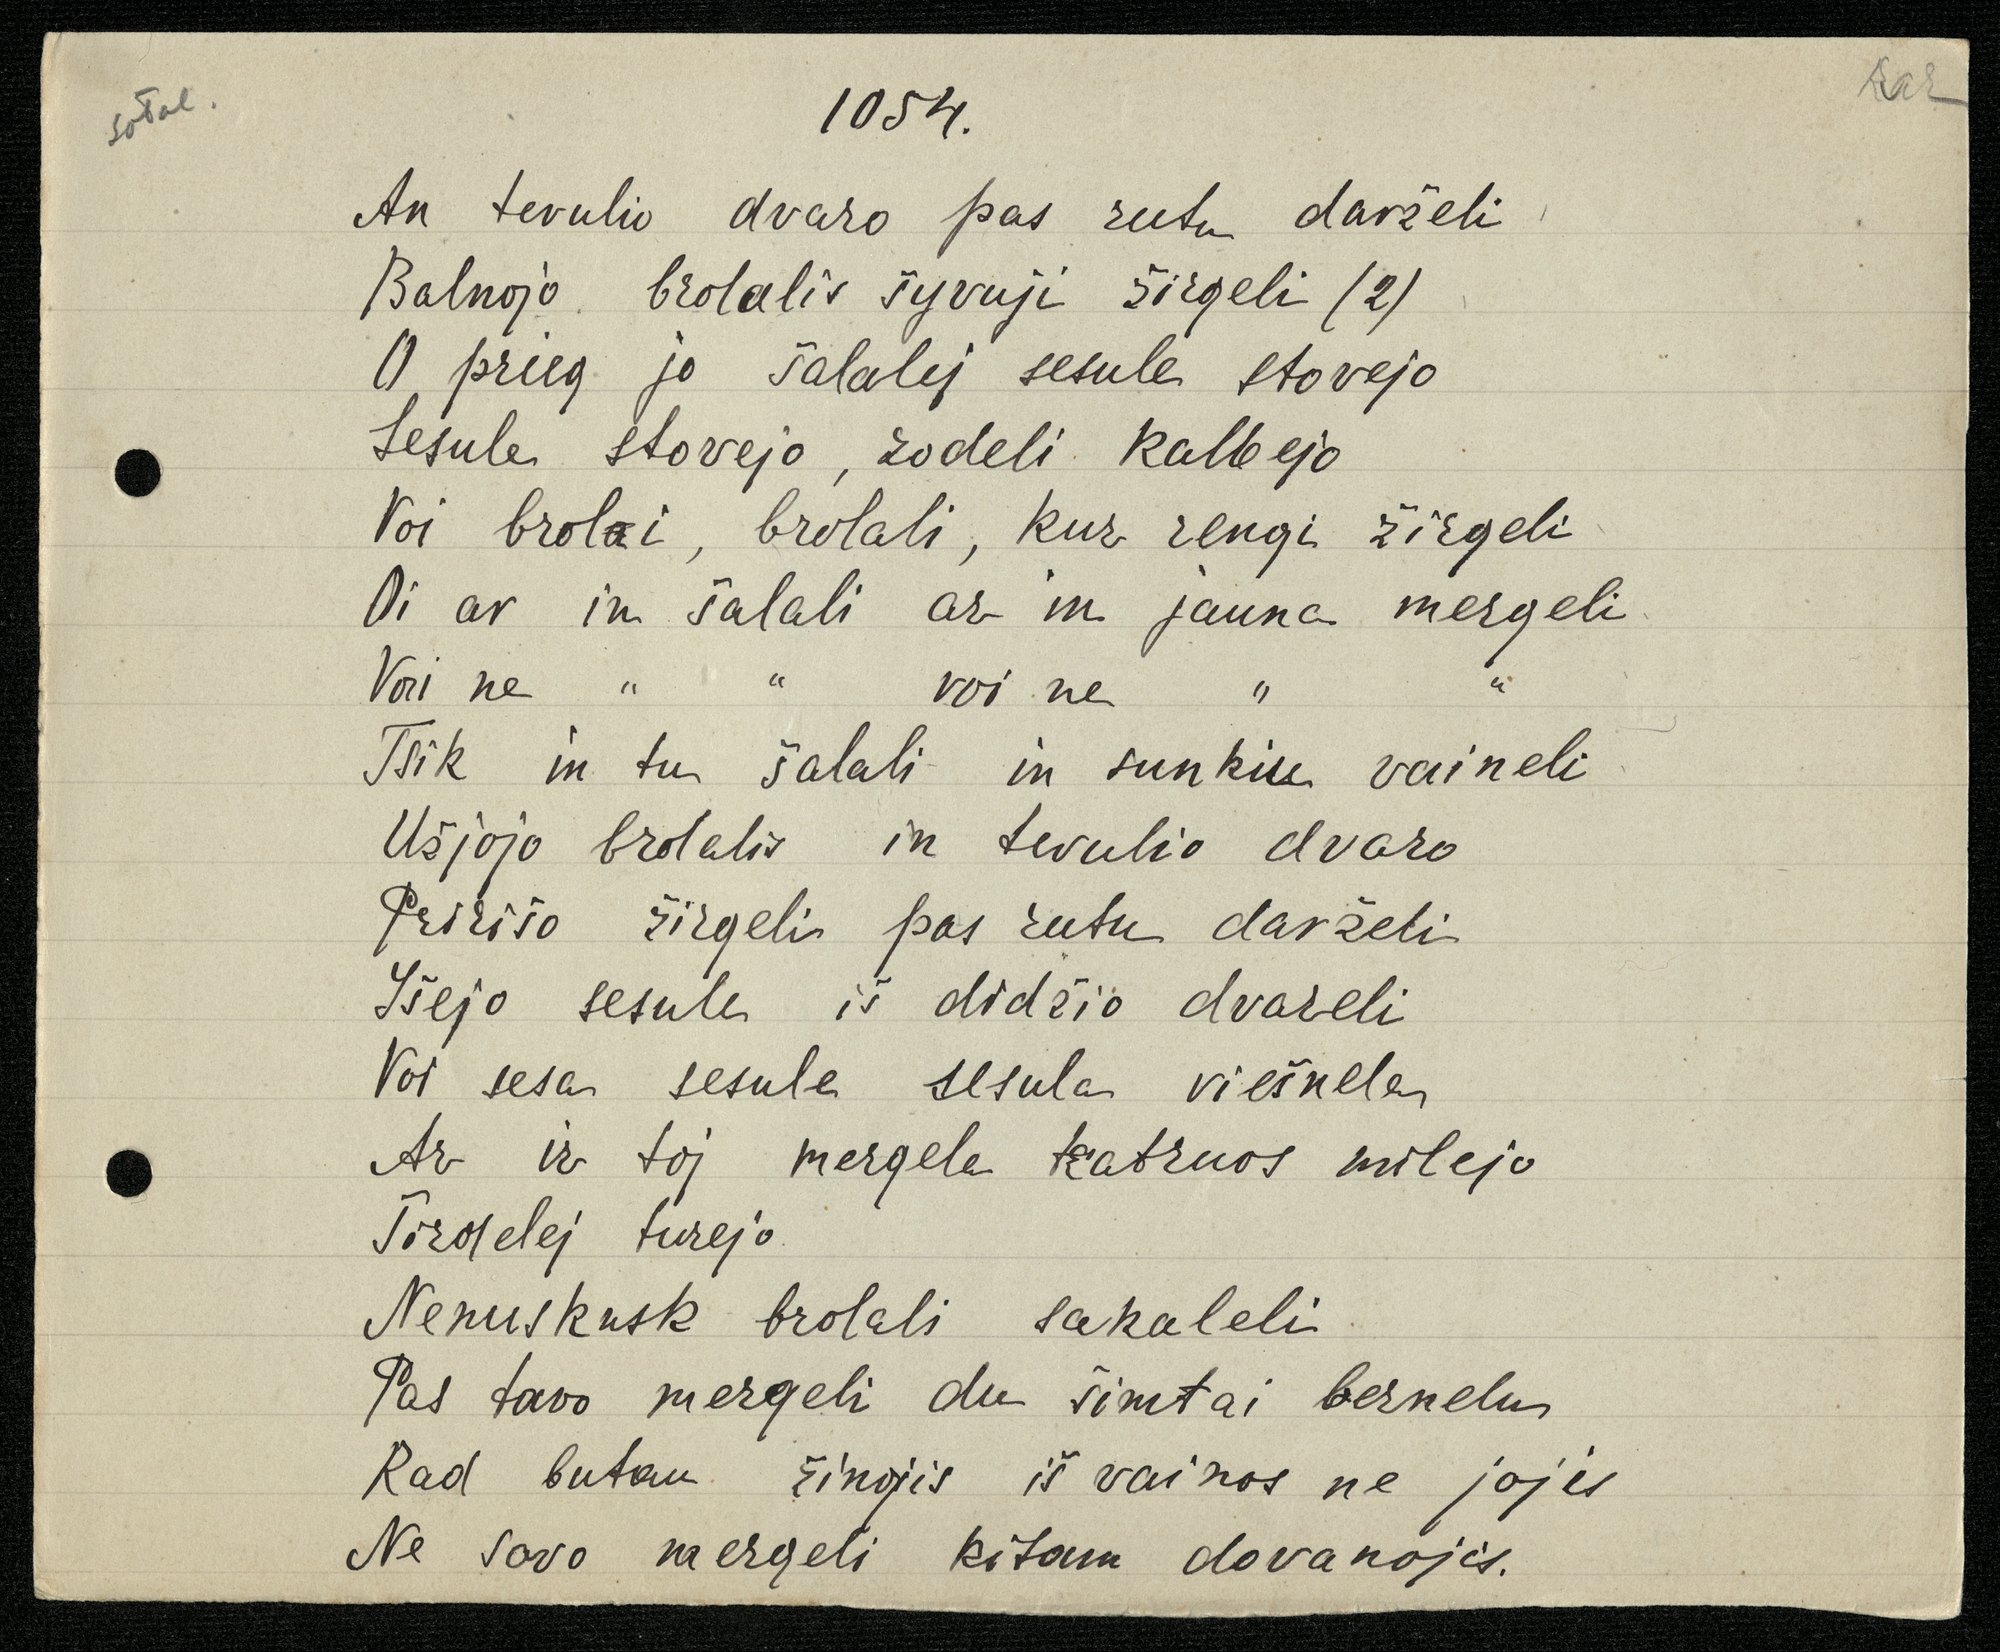 1054.
An tevulio dvaro pas rutu darželi
Balnojo brolalis šyvuji žirgeli (2)
O prieg jo šalalej sesule stovejo
Sesule stovejo, žodeli kalbejo
Voi brolai, brolali, kur rengi žirgeli
Oi ar in šalali ar in jauna mergeli
Voi ne " " voi ne " "
Tsik in tu šalali in sunkiu vaineli
Užjojo brolalis in tevulio dvaro
Pririšo žirgeli pas rutu darželi
Išejo sesule iš didžio dvareli
Voi sesa sesule sesula viešnele
Ar ir toj mergele katruos milejo
Širdelej turejo
Nenuskusk brolali sakaleli
Pas tavo mergeli du šimtai bernelu
Kad butau žinojis iš vainos ne jojis
Ne savo mergeli kitam dovanojis.